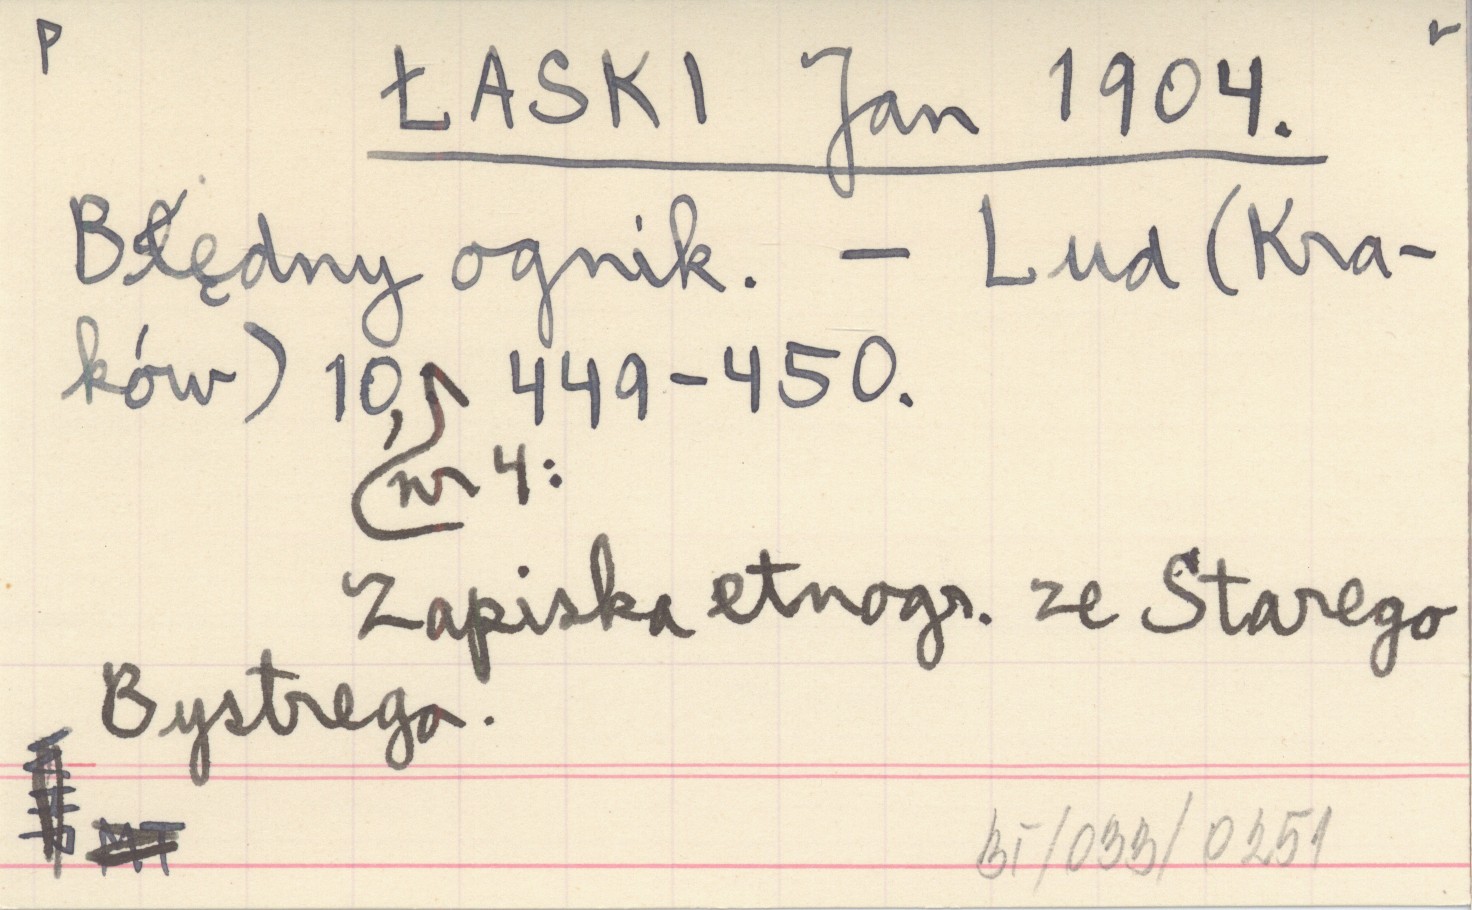 P
r
ŁASKI Jan 1904.
Błędny ognik. – Lud (Kra-
ków) 10, 449-450.
nr 4:
Zapiska etnogr. ze Starego
Bystrego.
MT
BI/033/0251